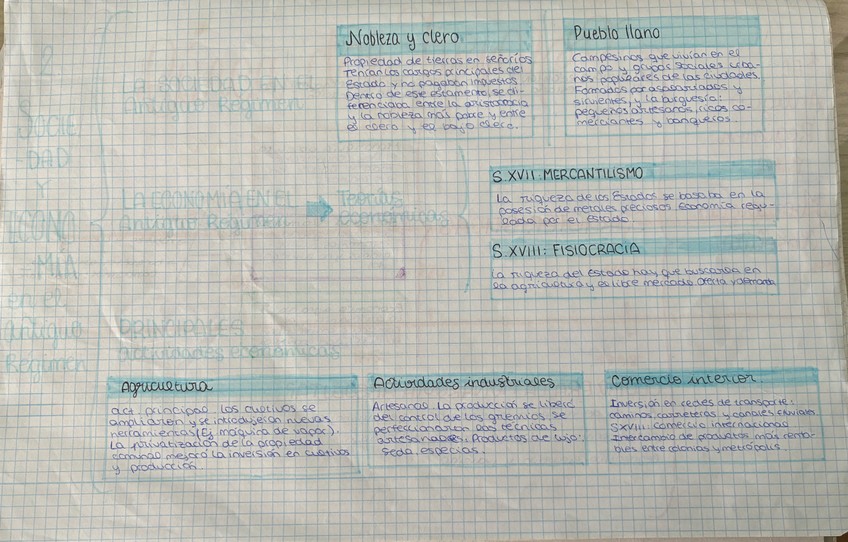 2
SOCIE
-DAD
Y
ECONO
-MÍA
en el
antiguo
Régimen
LA SOCIEDAD EN EL
Antiguo Régimen
Nobleza y clero
Propiedad de tierras en señoríos
Tenían los cargos principales del
Estado y no pagaban impuestos
Dentro de ese estamento, se di-
ferenciaba entre la aristocracia
y la nobleza más pobre y entre
el clero y el bajo clero.
Pueblo llano
Campesinos que vivían en el
campo y grupos sociales urba-
nos populares de las ciudades.
Formados por asalariados y
sirvientes, y la burguesía:
pequeños artesanos, ricos co-
merciantes y banqueros
LA ECONOMÍA EN EL
Antiguo Régimen
Teorías
económicas
S.XVII MERCANTILISMO
La riqueza de los Estados se basaba en la
posesión de metales preciosos economía regu-
lada por el estado.
S.XVIII: FISIOCRACIA
La riqueza del Estado hay que buscarla en
la agricultura y es libre mercado oferta y demanda
PRINCIPALES
actividades económicas
Agricultura
act. principal. Los cultivos se
ampliaron y se introdujeron nuevas
herramientas (Ej máquina de vapor).
La privatización de la propiedad
comunal mejoró la inversión en cultivos
y producción.
Actividades industriales
Artesanal. La producción se liberó
del control de los gremios se
perfeccionaron las técnicas
artesanales. Productos de lujo:
seda, especias.
Comercio interior.
Inversión en redes de transporte:
caminos, carreteras y canales fluviales
SXVIII: comercio internacional
Intercambio de productos más renta-
bles entre colonias y metrópolis